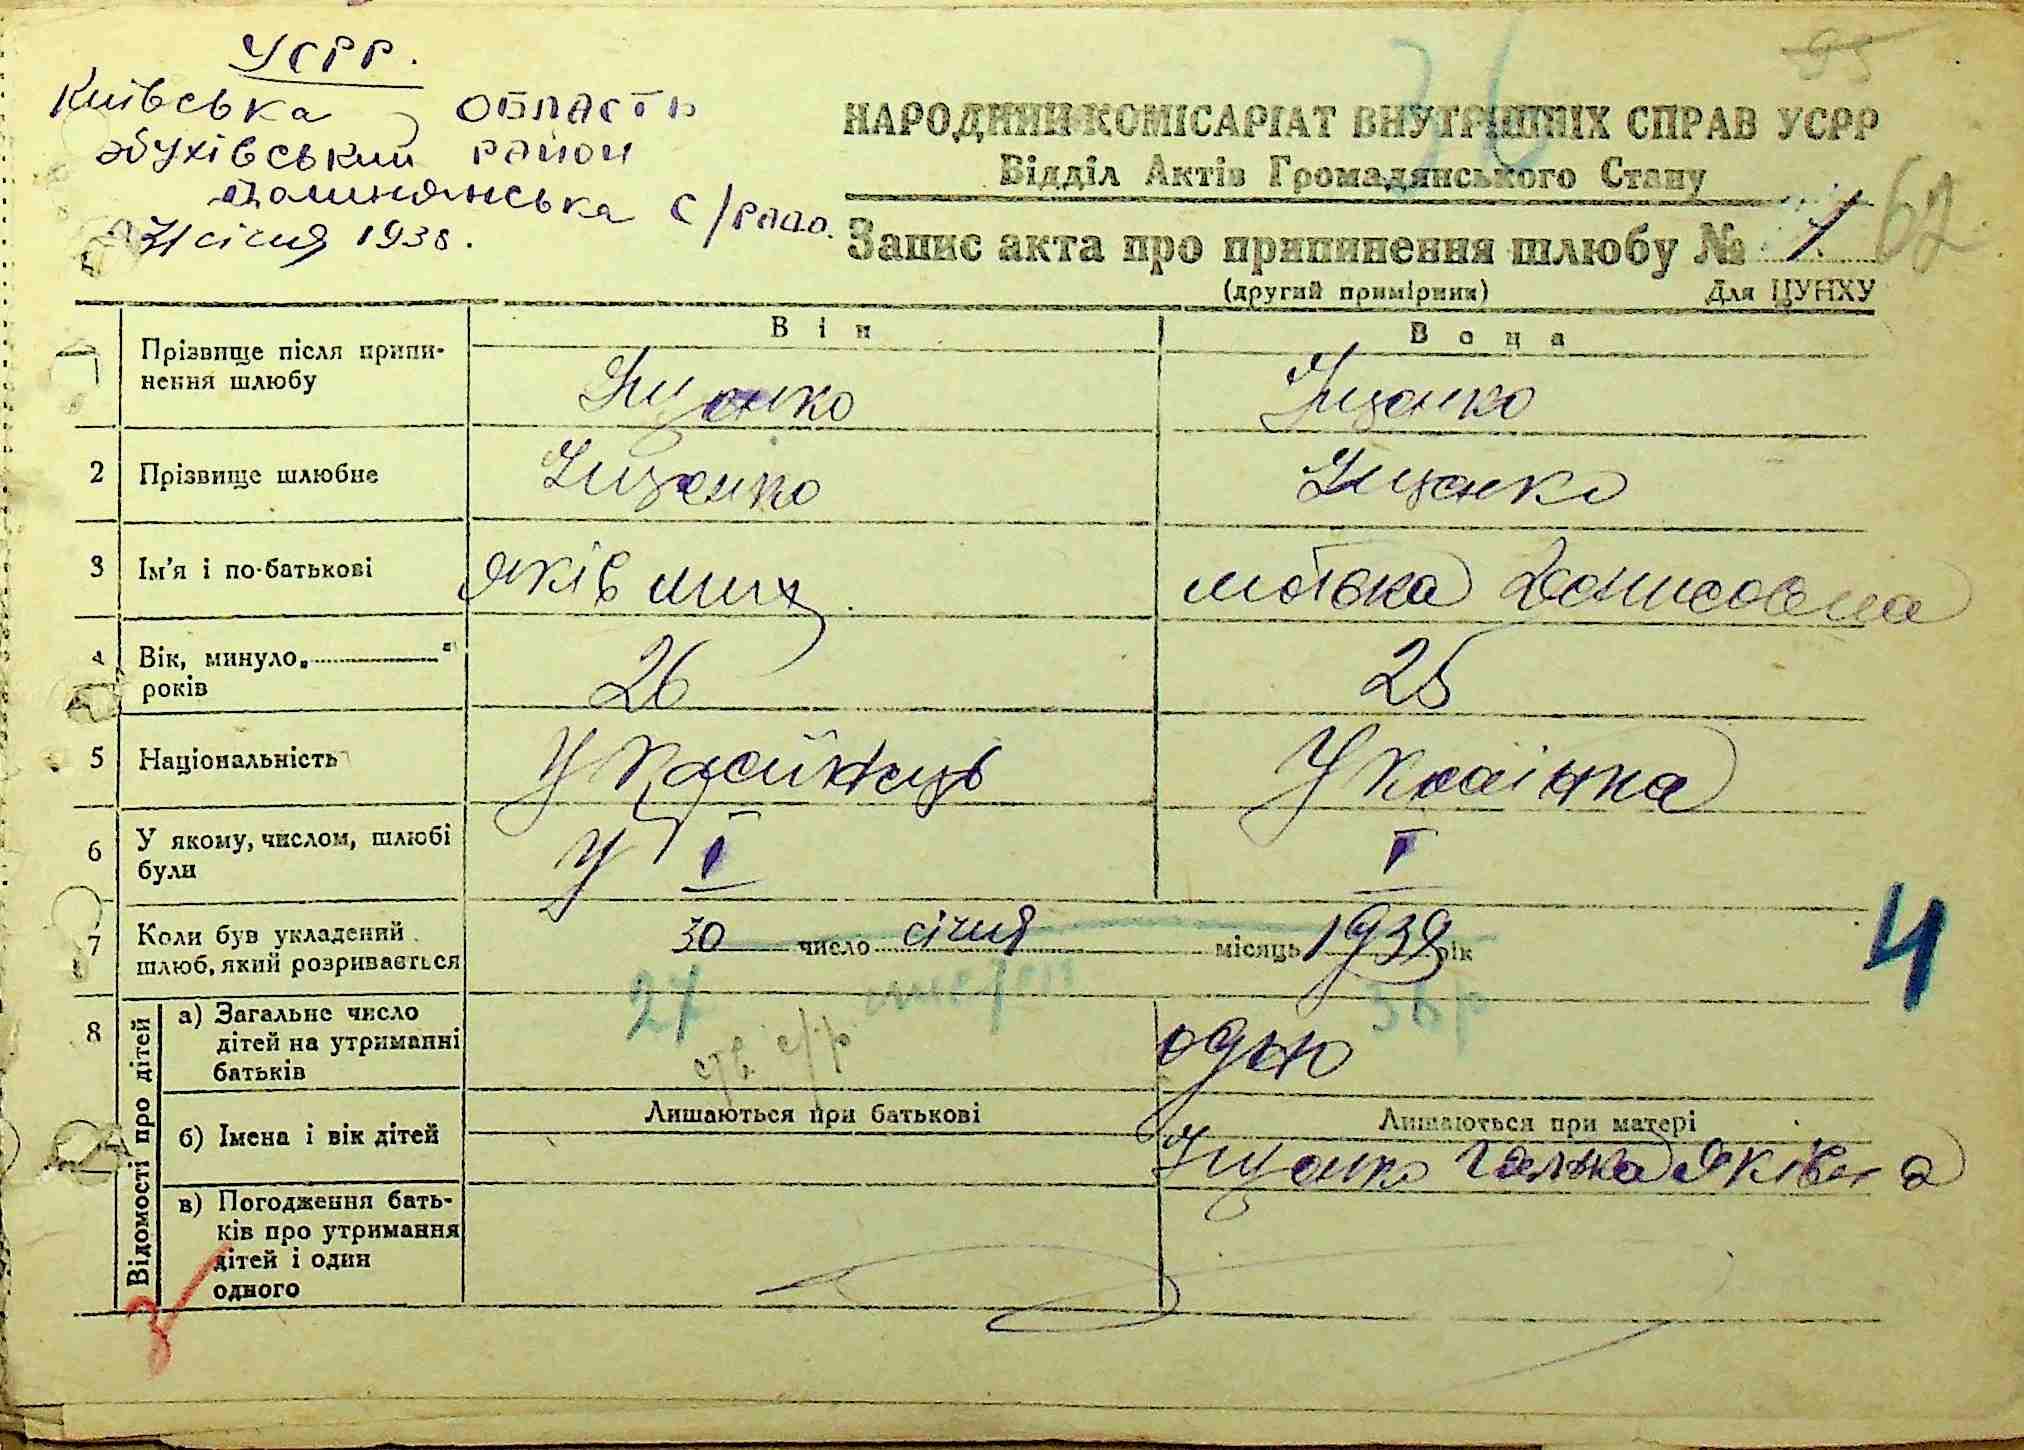 УСРР.
Київська область
Обухівський район
Долинянська с/рада.
31 січня 1938.
95
36
НАРОДНИЙ КОМІСАРІАТ ВНУТРІШНІХ СПРАВ УСРР
Відділ Актів Громадянського Стану
Запис акта про припинення шлюбу № 1
62
(другий примірник) Для ЦУНХУ
Він Вона
1 Прізвище після припи-
нення шлюбу
Іщенко Іщенко
2 Прізвище шлюбне Іщенко Іщенко
3 Ім'я і по-батькові Яків Мих. Мотька Денисовна
4 Вік, минуло „ "
років
26 25
5 Національність Українець Українка
6 У якому, числом, шлюбі
були
У І І
7 Коли був укладений
шлюб, який розривається
30 число січня місяць 1938 рік
27 36 р
4
8 Відомості про дітей
а) Загальне число
дітей на утриманні
батьків
с/р
одно
Лишаються при батькові Лишаються при матері
б) Імена і вік дітей
Іщенко Галька Яківна
в) Погодження бать-
ків про утримання
дітей і один
одного